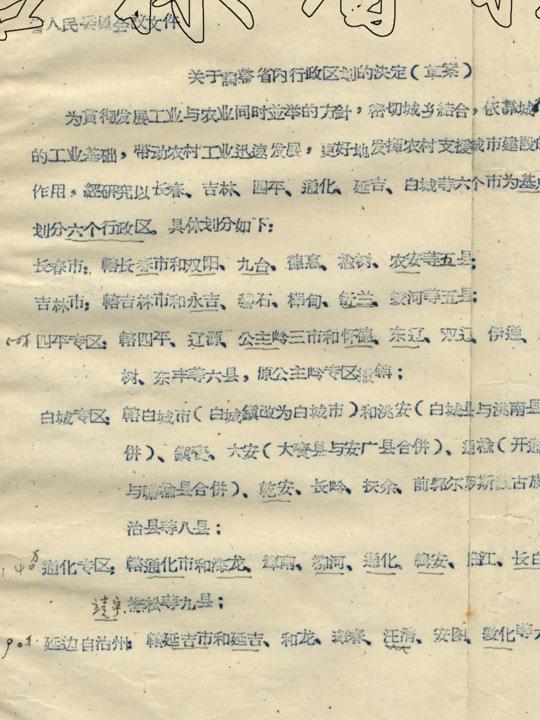 吉林省
省人民委員会议文件
关于調整省内行政区划的决定(草案)
为貫彻发展工业与农业同时並举的方針,密切城乡結合,依靠城
的工业基础,帶动农村工业迅速发展,更好地发揮农村支援城市建設的
作用,經研究以长春、吉林、四平、通化、延吉、白城等六个市为基
划分六个行政区。具体划分如下:
长春市:轄长春市和双阳、九台、德惠、榆树、农安等五县;
吉林市:轄吉林市和永吉、磐石、樺甸、舒兰、蛟河等五县;
四平专区:轄四平、辽源、公主岭三市和怀德、东辽、双辽、伊通、
树、东丰等六县,原公主岭专区撤銷;
白城专区:轄白城市(白城鎮改为白城市)和洮安(白城县与洮南县
併)、鎮賚、大安(大賚县与安广县合併)、通榆(开通
与瞻榆县合併)、乾安、长岭、扶余、前郭尔罗斯蒙古族
治县等八县;
万
140 通化专区:轄通化市和海龙、輝南、柳河、通化、輯安、临江、长白
靖宇 撫松等九县;
90万 延边自治州:轄延吉市和延吉、和龙、琿春、汪清、安图、敦化等